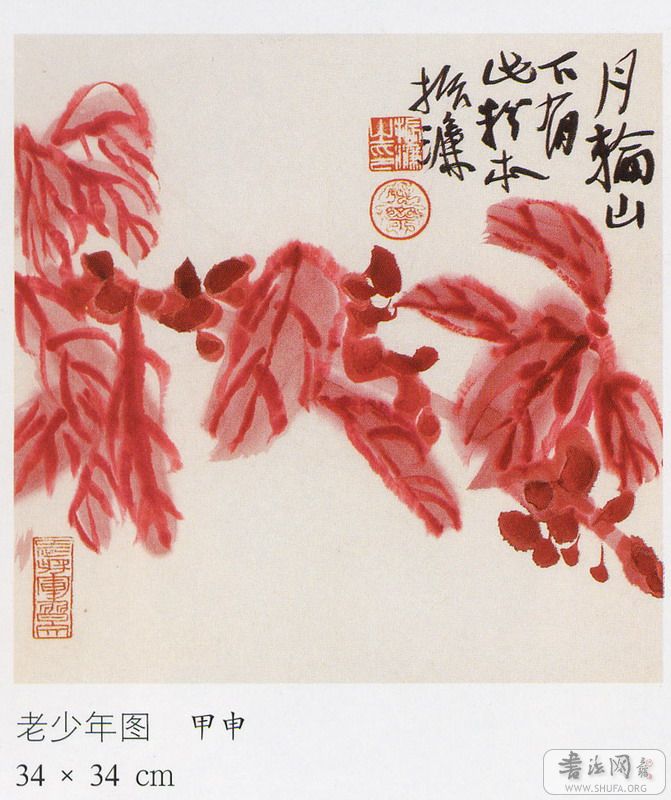 月轮山
下有
此粉本
振濂
老少年图 甲申
34 × 34 cm
书法网
WWW.SHUFA.ORG